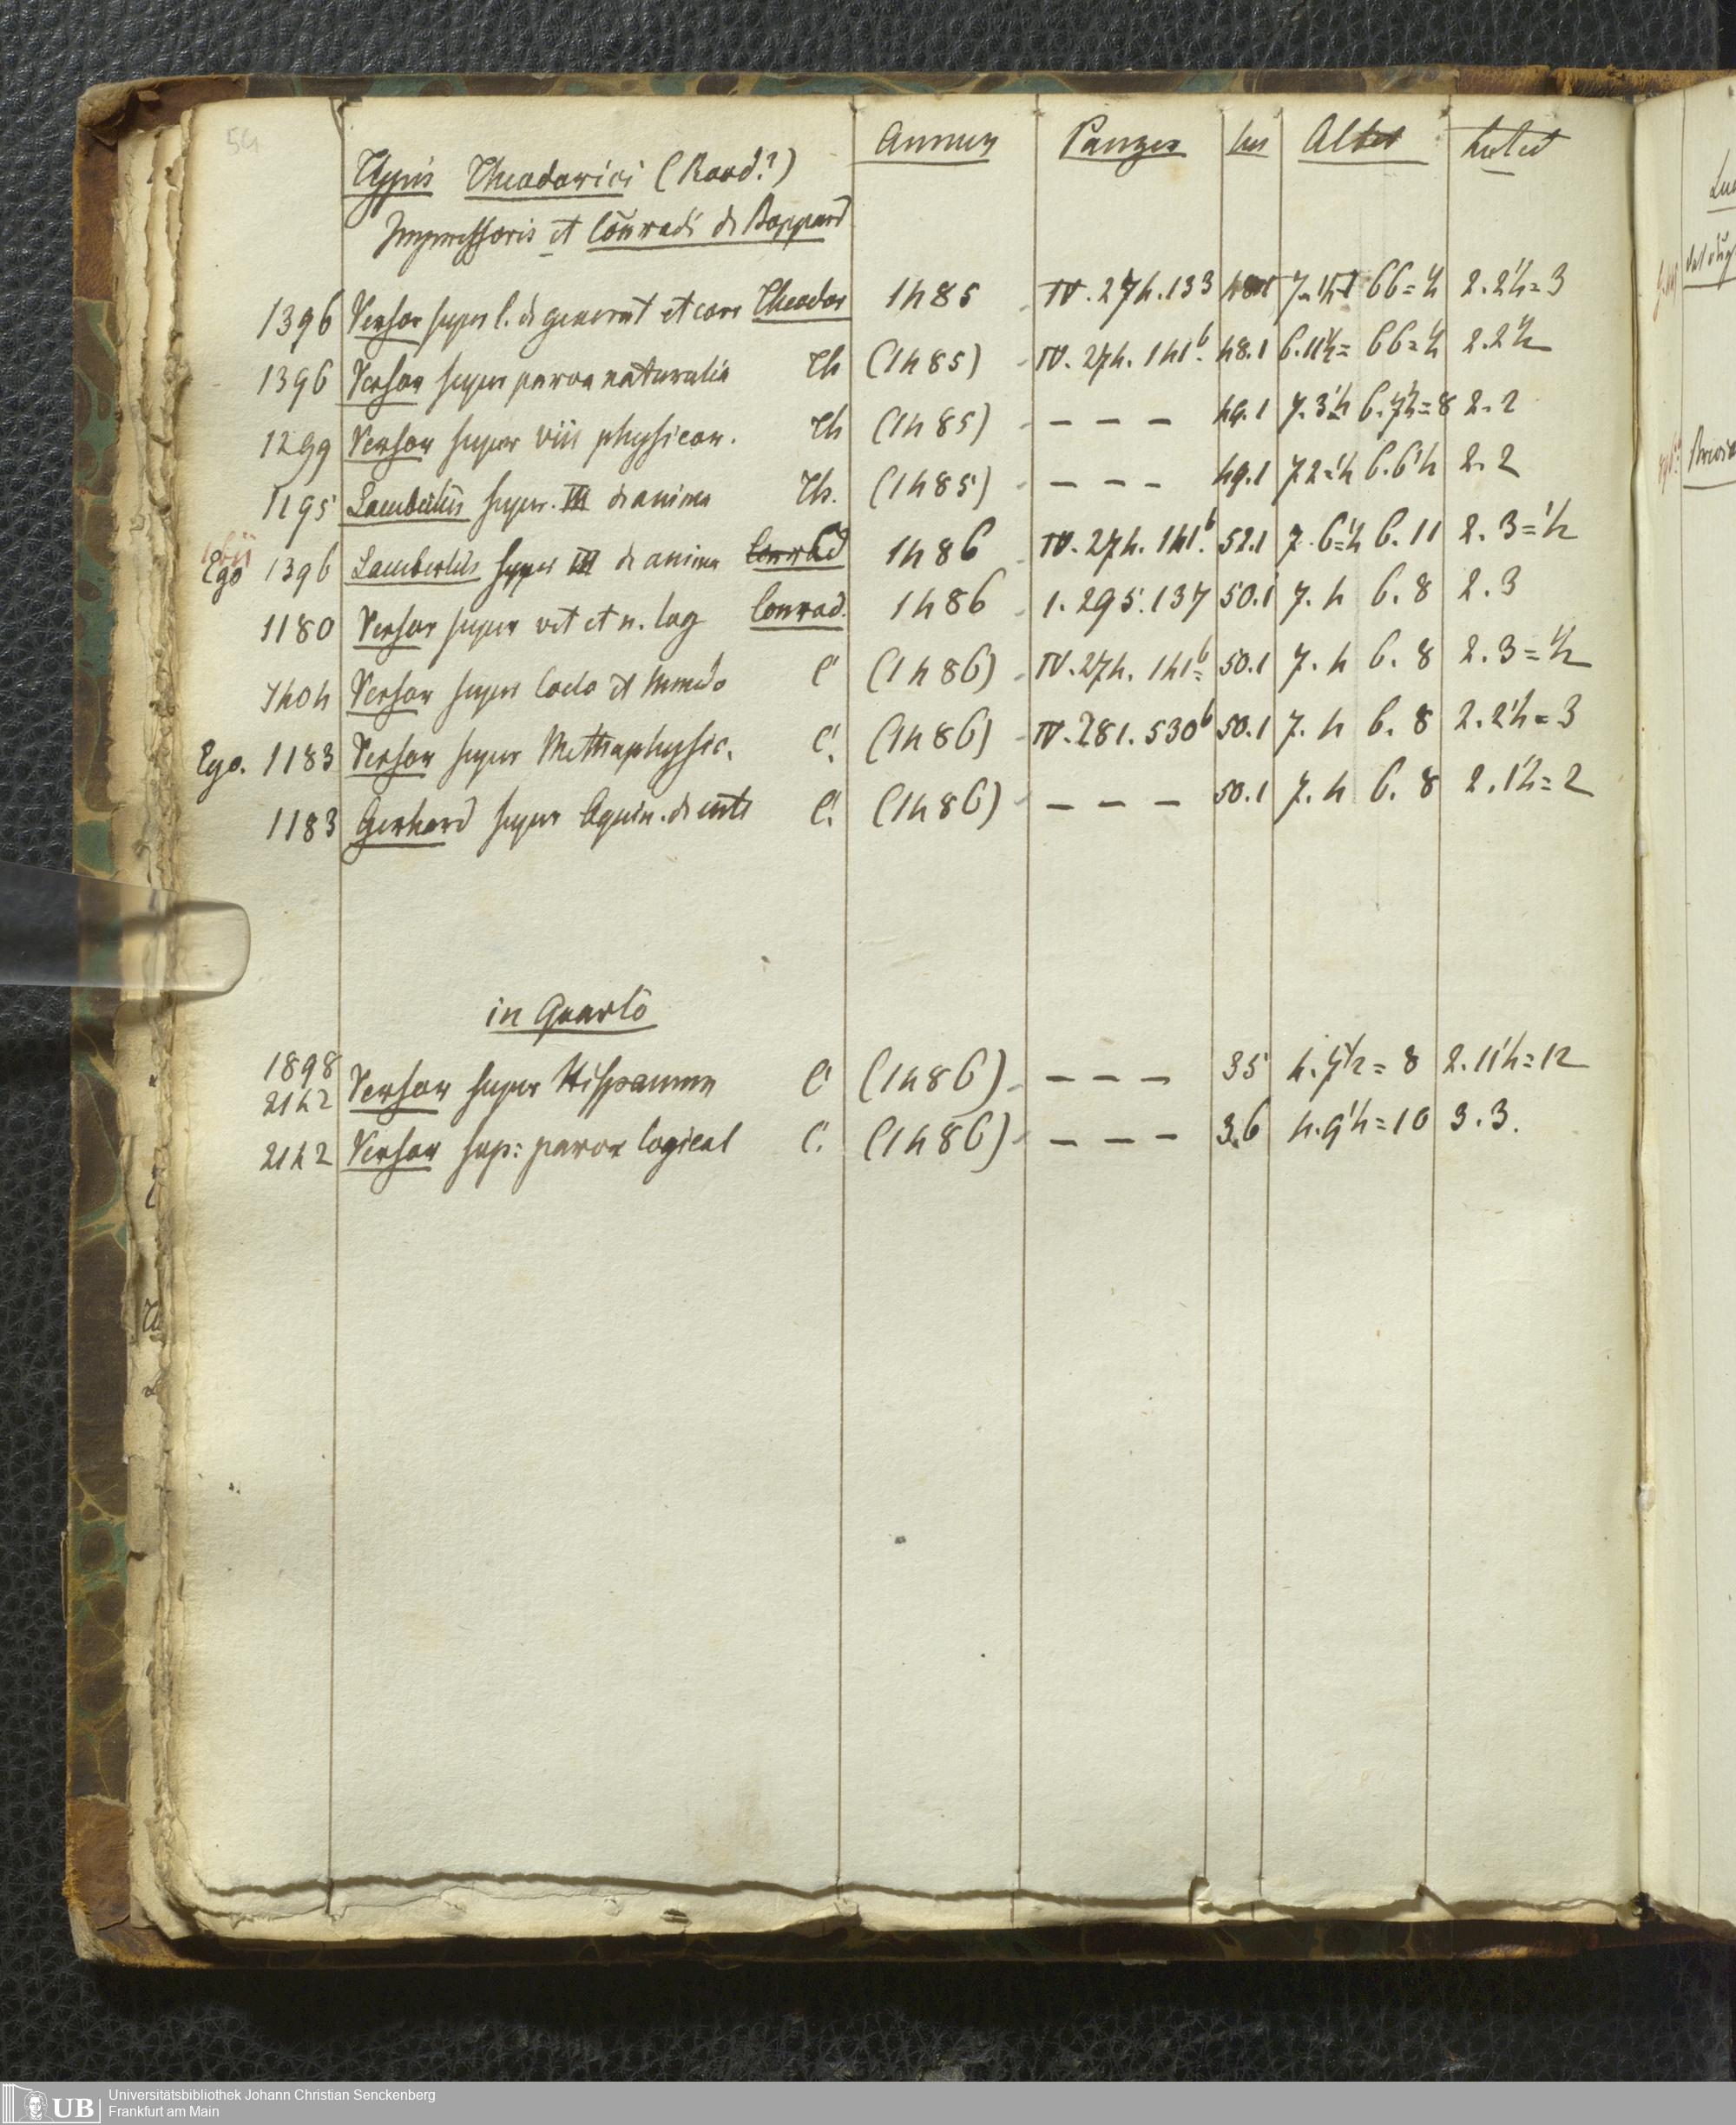 54
Typis Theodorici (Rood?) Annus Panzer lin Altit Latit
Impressoris et Conradi de Boppard
1396 Versor super l. de generat et corr Theodor 1485 IV. 274. 133 48.1 66=½ 2.2½=3
1396 Versor super parva naturalia Th (1485) IV. 274. 141b. 48.1 6.11½= 66=½ 2.2½
1299 Versor super viii physicor. Th (1485) - - - 49.1 7.3½ 6.7½=8 2.2
1195 Lambertus super. III de anima Th. (1485) - - - 49.1 72=½ 6.6½ 2.2
Ego 1396 Lambertus super III de anima Conrad 1486 IV. 274. 141b. 52.1 7.6=½ 6.11 2.3=½
1180 Versor super vet et n. log Conrad. 1486 1. 295. 137 50.1 7.4 6.8 2.3
1404 Versor super Coelo et Mundo C (1486) IV. 274. 141b 50.1 7.4 6.8 2.3=½
Ego. 1183 Versor super Methaphysic. C. (1486) IV. 281. 530b 50.1 7.4 6.8 2.2½=3
1183 Gerhard super Aquin. de C. (1486) - - - 50.1 7.4 6.8 2.1½=2
in Quarto
1898
2142 Versor super Hispanum C (1486) - - - 35 4.7½=8 2.11½=12
2142 Versor sup: parva logical C. (1486) - - - 36 4.9½=10 3.3.
UB Universitätsbibliothek Johann Christian Senckenberg
Frankfurt am Main